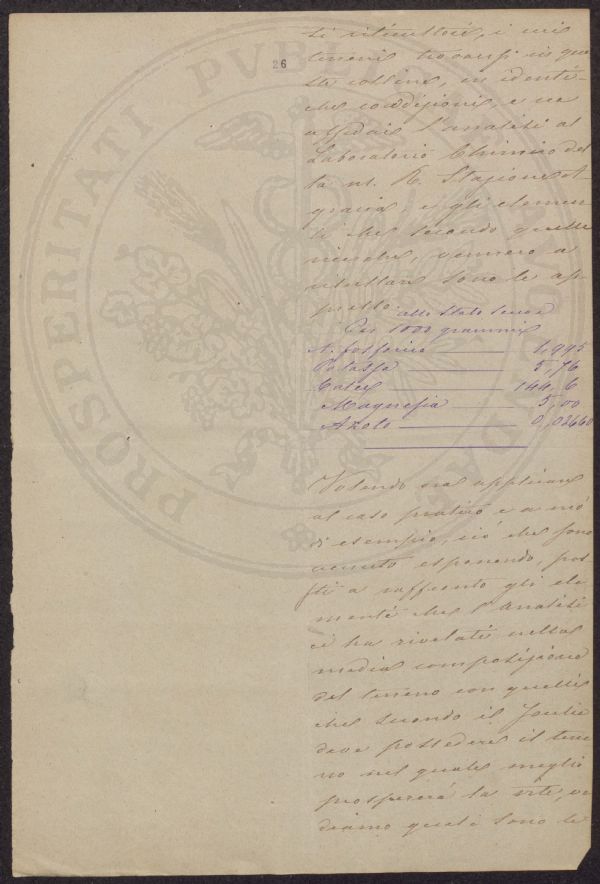 26
PROSPERITATI PVBLI AVGENDAE
si viticultori, i miei
terreni trovansi in que
ste colline, in identi-
che condizioni, e ne
affidai l'analisi al
Laboratorio Chimico del
la R. Stazione A-
graria, e gli elemen
ti che secondo quelle
ricerche, vennero a
risultare sono le ap-
presso: allo stato secco
Per 1000 grammi
A. fosforico 1,995
Potassa 5,76
Calce 144,6
Magnesia 5,00
Azoto 0,02660
Volendo ora applicare
al caso pratico e a mo'
di esempio, ciò che sono
venuto esponendo, pos-
ti a raffronto gli ele
menti che l'analisi
ci ha rivelati nella
media composizione
del terreno con quelli
che secondo il Joulie
deve possedere il terre
no nel quale meglio
prospererà la vite, ve
diamo quali sono le